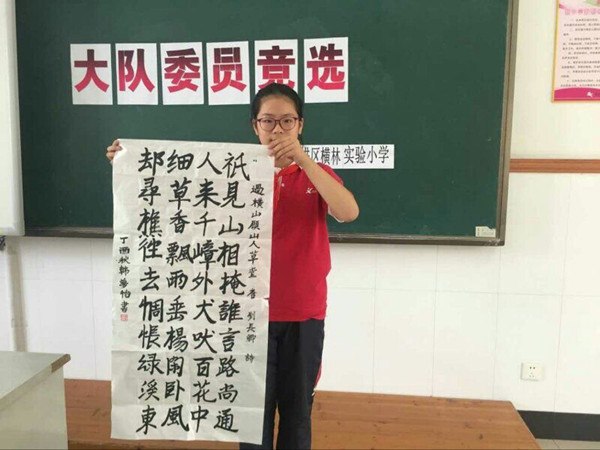 大队委员竞选
区横林 实验小学
過横山顾山人草堂 唐 刘长卿 诗
祇見山相掩誰言路尚通
人来千嶂外犬吠百花中
细草香飄雨垂楊閑卧風
却尋樵徑去惆悵绿溪東
丁酉秋韩梦怡書